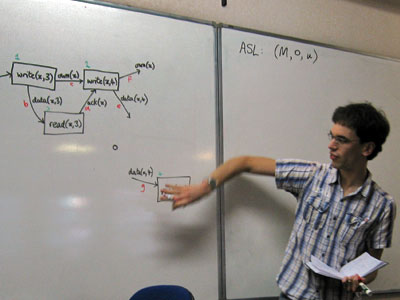 1
write(x,3)
own(x)
c
2
write(x,4)
own(x)
F
b
data(x,3)
ack(x)
d
e
data(x,4)
read(x,3)
data(x,4)
g
ASL: (M, O, u)